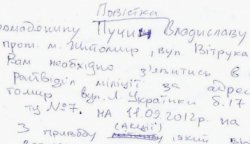 Повістка
громадянину Пучин Владиславу
прож. м. Житомир, вул Вітрука
Вам необхідно з'явитись в
Райвідділ міліції за адрес
томир вул. Л. Українки б. 17.
ту №7. на 11.09.2012р. на
З приводу (Акції) який ві